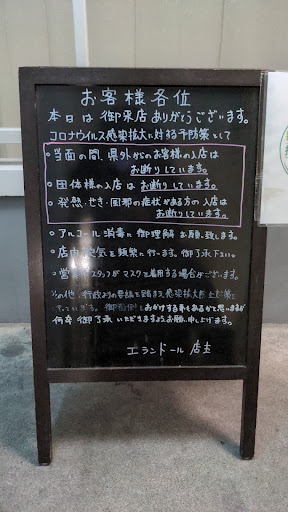 お客様各位
本日は御来店ありがとうございます。
コロナウイルス感染拡大に対する予防策として
○当面の間、県外からのお客様の入店は
お断りしています。
○団体様の入店はお断りしています。
○発熱・せき・風邪の症状がある方の入店は
お断りしています。
○アルコール消毒に御理解お願い致します。
○店内換気を頻繁に行ます。御了承下さい。
○営業中スタッフがマスクを着用する場合がございます。
その他、行政よりの要請を踏まえ、感染拡大防止対策
を行っています。御面倒
おかけする事もあるかと思いますが
何卒御了承いただきますようお願い申し上げます。
エランドール 店主